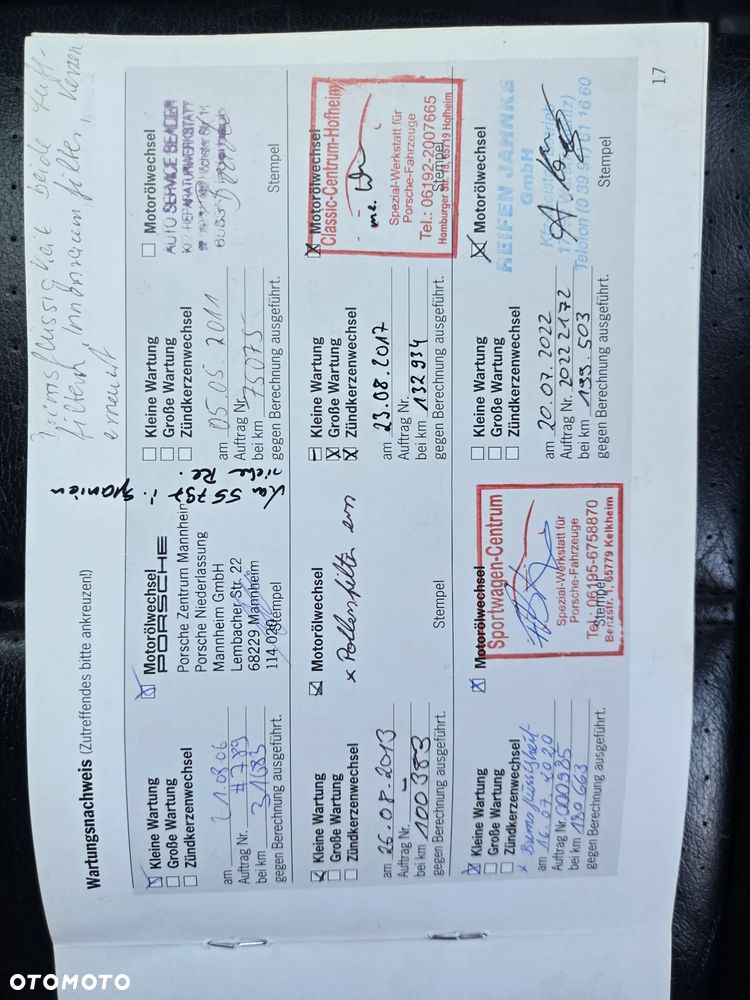 Wartungsnachweis (Zutreffendes bitte ankreuzen!)
Bremsflüssigkeit beide Luft-
filtern, Innenraumfilter, Kerzen
erneuert
Kleine Wartung
Große Wartung
Zündkerzenwechsel
Motorölwechsel
PORSCHE
Porsche Zentrum Mannheim
Porsche Niederlassung
Mannheim GmbH
Lembacher Str. 22
68229 Mannheim
114 020
Stempel
am 21.08.06
Auftrag Nr. #789
bei km 31683
gegen Berechnung ausgeführt.
km 55797 i. Spanien
siehe Re.
Kleine Wartung
Große Wartung
Zündkerzenwechsel
Motorölwechsel
AUTO SERVICE BEADER
KFZ-REPARATURWERKSTATT
Stempel
am 05.05.2011
Auftrag Nr.
bei km 75075
gegen Berechnung ausgeführt.
Kleine Wartung
Große Wartung
Zündkerzenwechsel
Motorölwechsel
x Pollenfilter ern
Stempel
am 26.08.2013
Auftrag Nr. –
bei km 100383
gegen Berechnung ausgeführt.
Kleine Wartung
Große Wartung
Zündkerzenwechsel
Motorölwechsel
Classic-Centrum-Hofheim
Spezial-Werkstatt für
Porsche-Fahrzeuge
Tel.: 06192-2007665
Homburger Str. 18, 65719 Hofheim
Stempel
am 23.08.2017
Auftrag Nr.
bei km 132934
gegen Berechnung ausgeführt.
Kleine Wartung
Große Wartung
Zündkerzenwechsel
x Bremsflüssigkeit
Motorölwechsel
Sportwagen-Centrum
Spezial-Werkstatt für
Porsche-Fahrzeuge
Tel.: 06195-6758870
Benzstr. 1, 65779 Kelkheim
Stempel
am 16.07.2020
Auftrag Nr. 000985
bei km 180 663
gegen Berechnung ausgeführt.
Kleine Wartung
Große Wartung
Zündkerzenwechsel
Motorölwechsel
REIFEN JAHNKE
GmbH
Stempel
am 20.07.2022
Auftrag Nr. 2022 2172
bei km 193.503
gegen Berechnung ausgeführt.
17
OTOMOTO